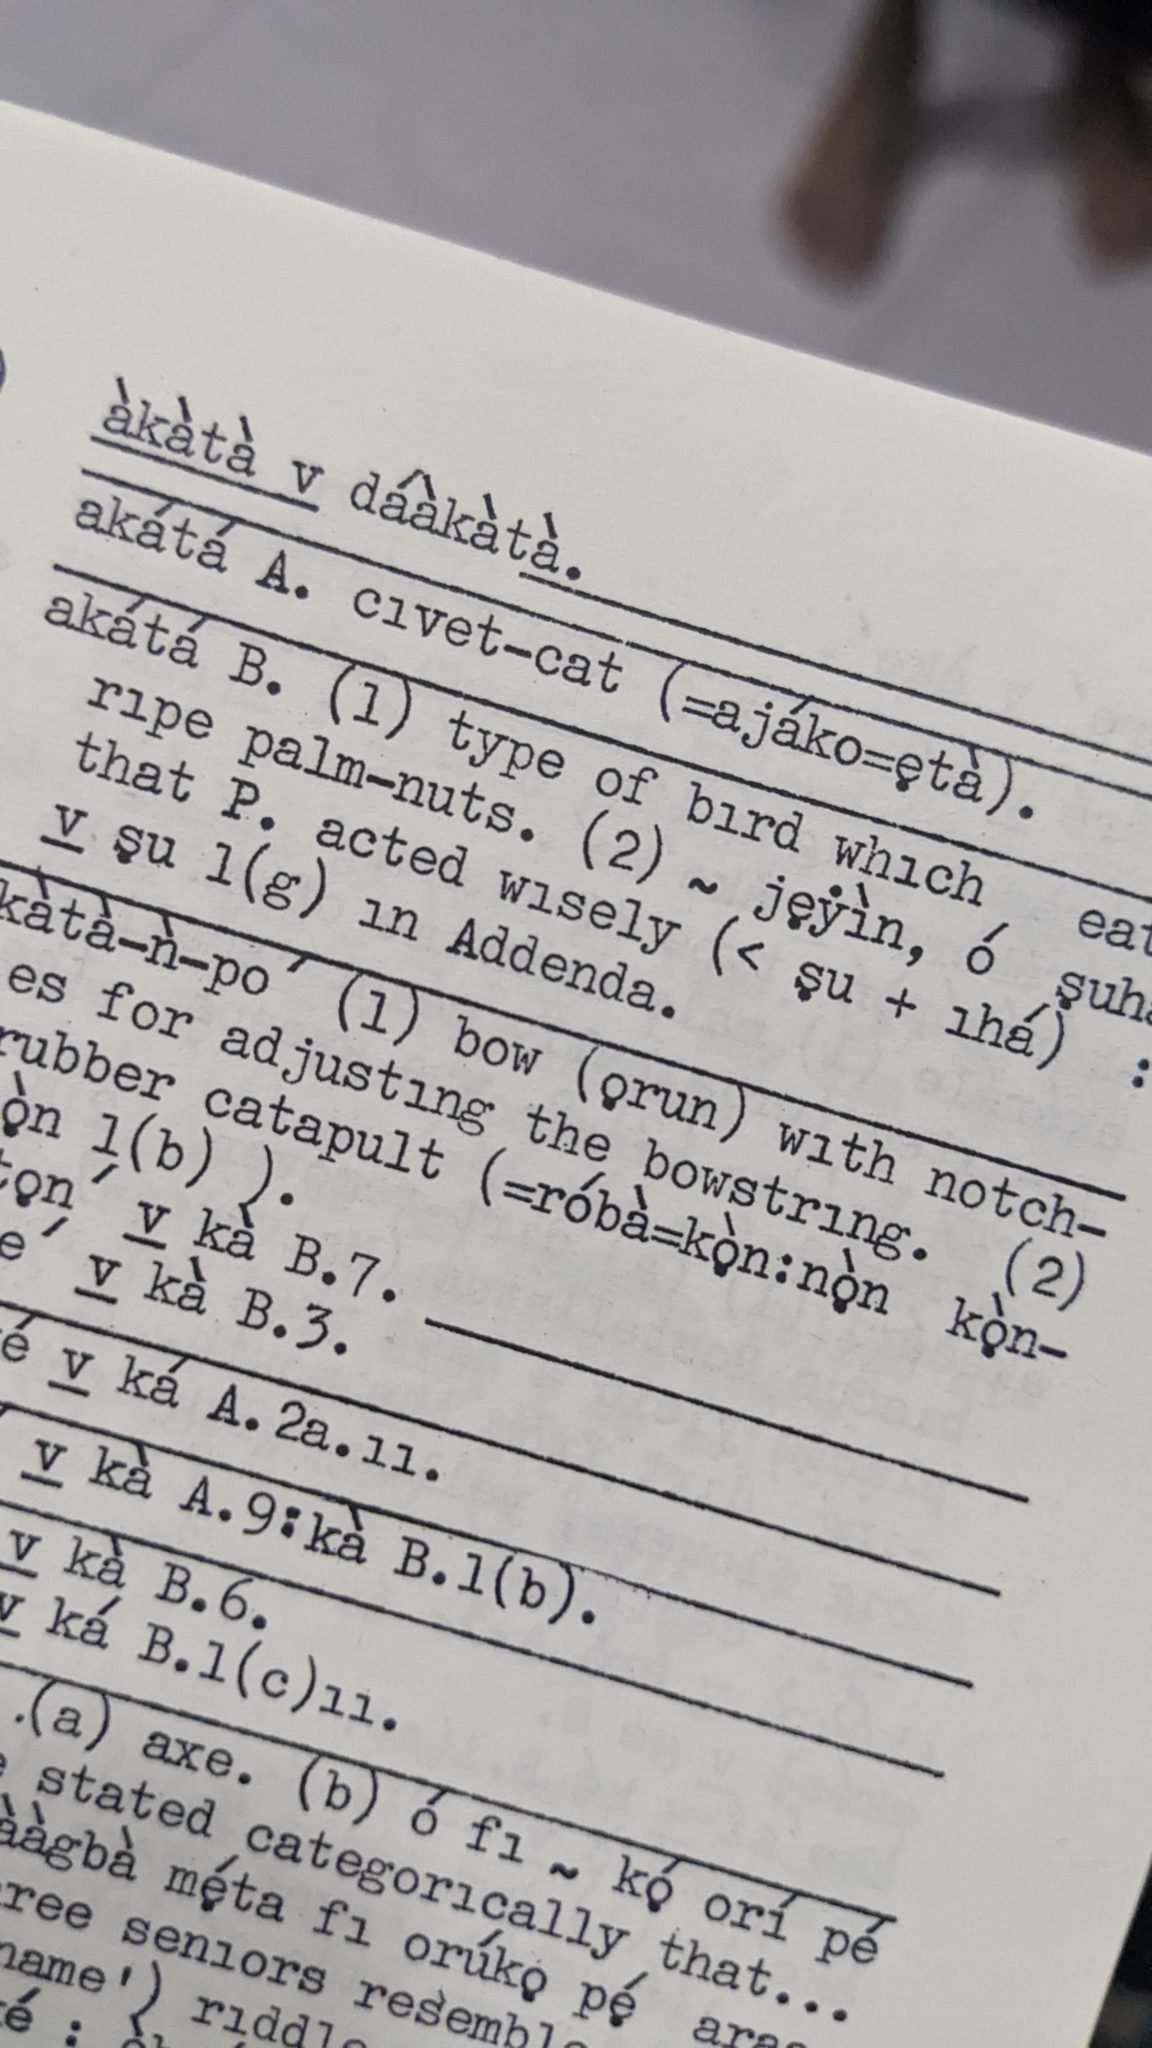 àkàtà v dáàkàtà.
akátá A. cıvet-cat (=ajáko=ẹtà).
akátá B. (1) type of bırd whıch eat
rıpe palm-nuts. (2) ~ jẹyìn, ó ṣuh
that P. acted wısely (< ṣu + ıhá) :
v ṣu 1(g) ın Addenda.
kàtà-ǹ-po´ (1) bow (ọrun) wıth notch-
es for adjustıng the bowstrıng. (2)
rubber catapult (=róbà=kọ̀n:nọ̀n kọ̀n-
ọ̀n 1(b) ).
tọn´ v kà B.7.
e´ v kà B.3.
é v ká A.2a.ıı.
v kà A.9:kà B.1(b).
v kà B.6.
v ká B.1(c)ıı.
.(a) axe. (b) ó fı ~ kọ́ orí pé
stated categorıcally that...
ààgbà mẹ́ta fı orúkọ pẹ́ ara
ree senıors resemble
name') rıddle
é :